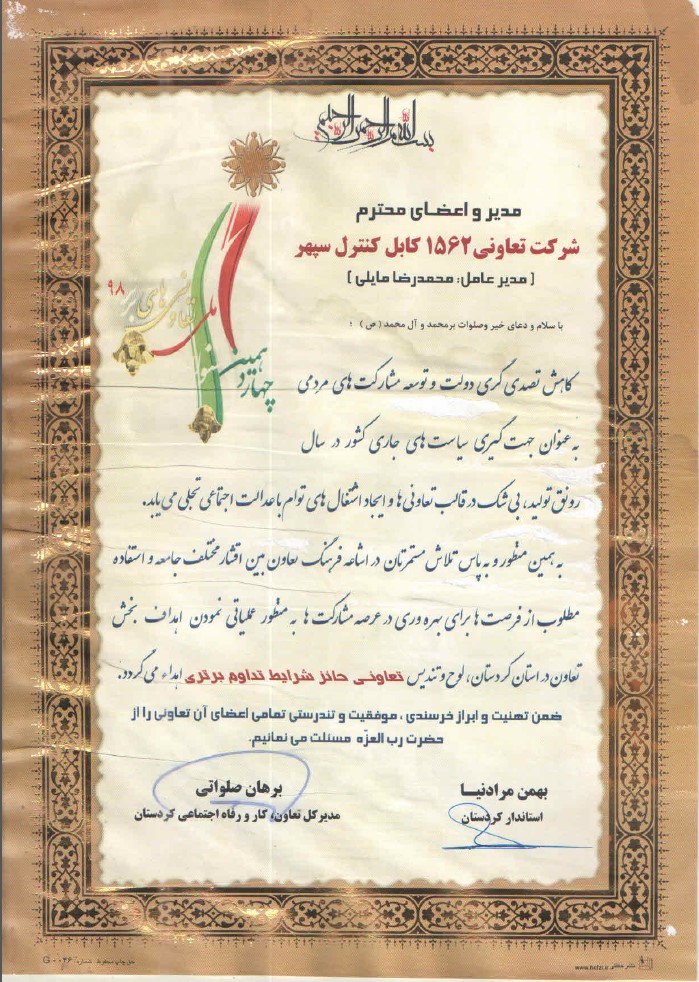 بسم الله الرحمن الرحیم
چهاردهمین
جشنواره
ملی
تعاونی های برتر
۹۸
مدیر و اعضای محترم
شرکت تعاونی ۱۵۶۲ کابل کنترل سپهر
( مدیر عامل: محمدرضا مایلی )
با سلام و دعای خیر وصلوات برمحمد و آل محمد (ص) ؛
کاهش تصدی گری دولت و توسعه مشارکت های مردمی
به عنوان جهت گیری سیاست های جاری کشور در سال
رونق تولید، بی شک در قالب تعاونی ها و ایجاد اشتغال های توام با عدالت اجتماعی تجلی می یابد.
به همین منظور و به پاس تلاش مستمرتان در اشاعه فرهنگ تعاون بین اقشار مختلف جامعه و استفاده
مطلوب از فرصت ها برای بهره وری در عرصه مشارکت ها به منظور عملیاتی نمودن اهداف بخش
تعاون در استان کردستان، لوح و تندیس تعاونی حائز شرایط تداوم برتری اهداء می گردد.
ضمن تهنیت و ابراز خرسندی ، موفقیت و تندرستی تمامی اعضای آن تعاونی را از
حضرت رب العزّه مسئلت می نمائیم.
بهمن مرادنیا
استاندار کردستان
برهان صلواتی
مدیرکل تعاون، کار و رفاه اجتماعی کردستان